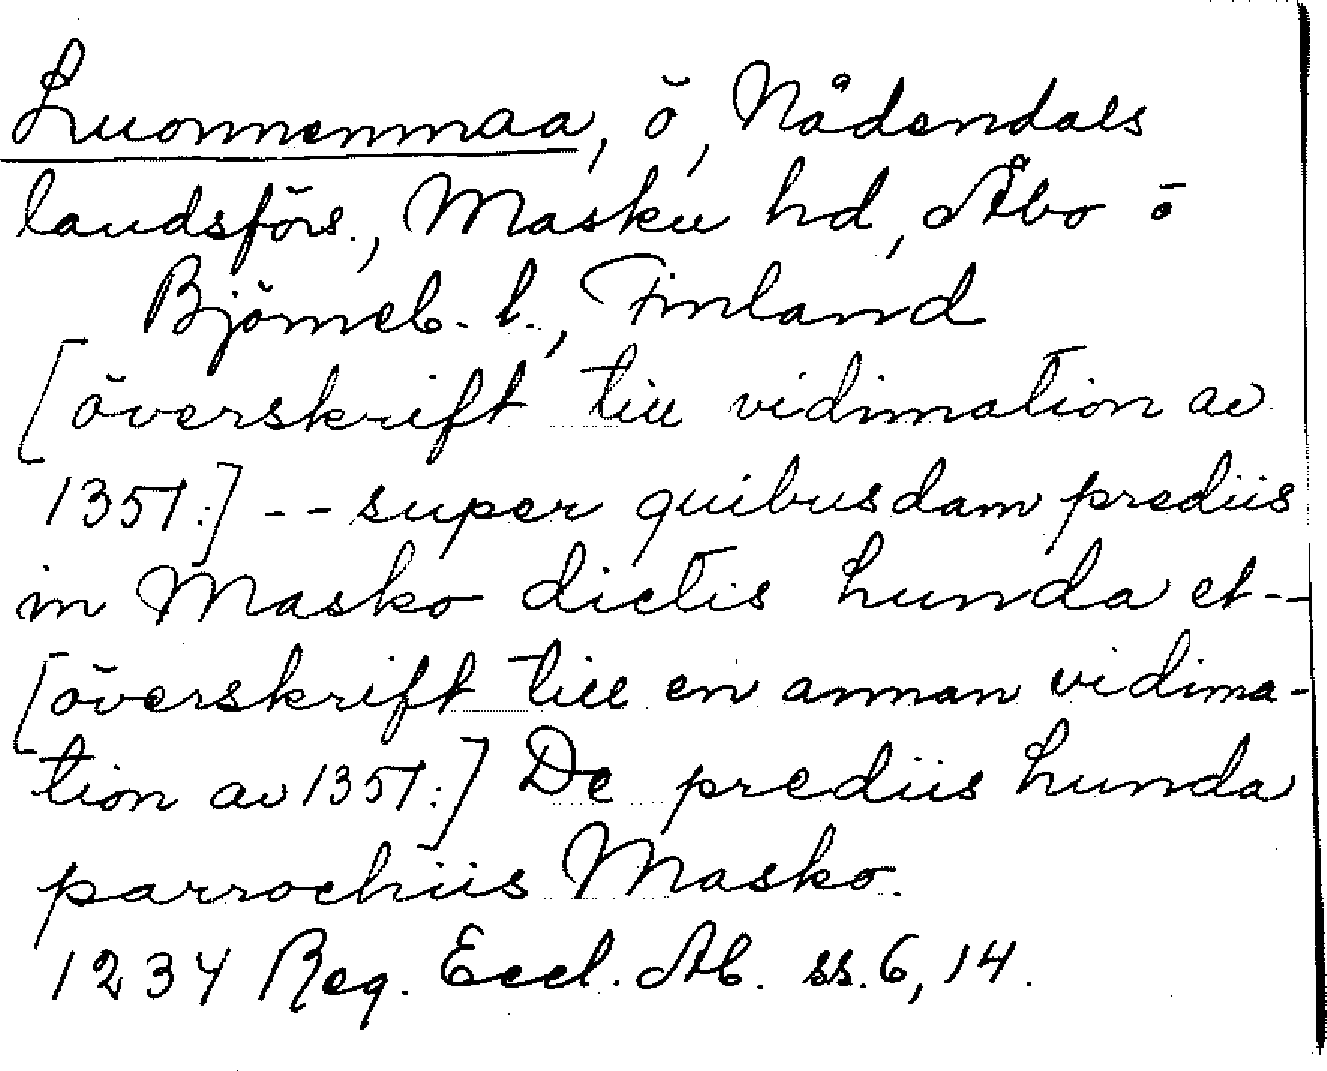 Luonnenmaa, ö, Nådendals
landsförs., Masku hd, Åbo o
Björneb. l., Finland
[överskrift till vidimation av
1351:] -- super quibusdam prediis
in Masko dictis hunda et --
[överskrift till en annan vidima-
tion av 1351:] De prediis hunda
parrochiis Masko.
1234 Reg. Eccl. Ab. ss. 6, 14.